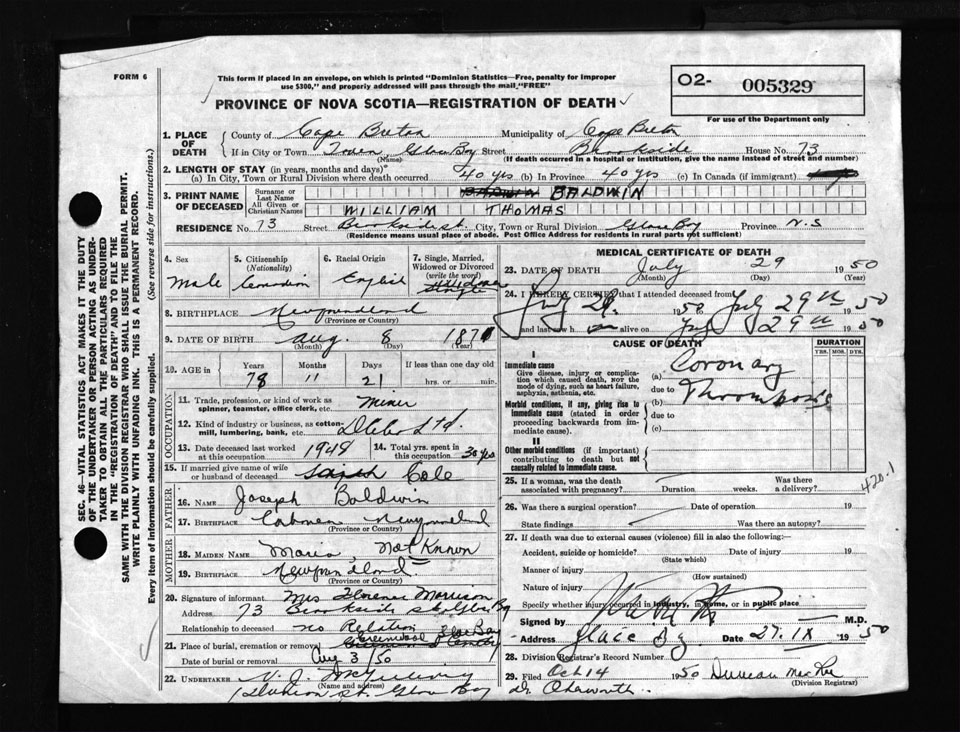 FORM 6
This form if placed in an envelope, on which is printed "Dominion Statistics—Free, penalty for improper
use $300," and properly addressed will pass through the mail "FREE"
O2- 005329
For use of the Department only
PROVINCE OF NOVA SCOTIA—REGISTRATION OF DEATH
1. PLACE OF DEATH
County of Cape Breton Municipality of Cape Breton
If in City or Town Town Glace Bay Street Brookside House No. 73
(Name) (If death occurred in a hospital or institution, give the name instead of street and number)
2. LENGTH OF STAY (in years, months and days)
(a) In City, Town or Rural Division where death occurred 40 yrs (b) In Province 40 yrs (c) In Canada (if immigrant)
3. PRINT NAME OF DECEASED
Surname or Last Name BALDWIN
All Given or Christian Names WILLIAM THOMAS
RESIDENCE No. 73 Street Brookside st. City, Town or Rural Division Glace Bay Province N.S
(Residence means usual place of abode. Post Office Address for residents in rural parts not sufficient)
4. Sex
Male
5. Citizenship (Nationality)
Canadian
6. Racial Origin
English
7. Single, Married, Widowed or Divorced (write the word)
Widower
Single
8. BIRTHPLACE Newfoundland
(Province or Country)
9. DATE OF BIRTH Aug. 8 1871
(Month) (Day) (Year)
10. AGE in Years Months Days If less than one day old
78 11 21 hrs. or min.
OCCUPATION
11. Trade, profession, or kind of work as spinner, teamster, office clerk, etc. Miner
12. Kind of industry or business, as cotton-mill, lumbering, bank, etc. Ltd
13. Date deceased last worked at this occupation 1948
14. Total yrs. spent in this occupation 30 yrs
15. If married give name of wife or husband of deceased Sarah Cole
FATHER
16. NAME Joseph Baldwin
17. BIRTHPLACE Newfoundland
(Province or Country)
MOTHER
18. MAIDEN NAME Maria, Not Known
19. BIRTHPLACE Newfoundland
(Province or Country)
20. Signature of informant Mrs Florence Morrison
Address 73 Brookside st Glace Bay
Relationship to deceased no Relation
21. Place of burial, cremation or removal Greenwood Glace Bay
Date of burial or removal Aug 3 /50
22. UNDERTAKER V. J. McGillivray
(Name and address)
st. Glace Bay
MEDICAL CERTIFICATE OF DEATH
23. DATE OF DEATH July 29 1950
(Month) (Day)
24. I HEREBY CERTIFY that I attended deceased from
July 29 1950 July 29th 1950
and last saw h im alive on July 29th 1950
CAUSE OF DEATH
DURATION
YRS. MOS. DYS.
I
Immediate cause
Give disease, injury or complication which caused death, NOT the mode of dying, such as heart failure, asphyxia, asthenia, etc.
(a) Coronary
due to
(b) Thrombosis
Morbid conditions, if any, giving rise to immediate cause (stated in order proceeding backwards from immediate cause).
due to
(c)
II
Other morbid conditions (if important) contributing to death but not causally related to immediate cause.
420.1
25. If a woman, was the death associated with pregnancy? Duration weeks. Was there a delivery?
26. Was there a surgical operation? Date of operation 19
State findings Was there an autopsy?
27. If death was due to external causes (violence) fill in also the following:
Accident, suicide or homicide? Date of injury 19
(State which)
Manner of injury
(How sustained)
Nature of injury
Specify whether injury occurred in industry, in home, or in public place
Signed by M.D.
Address Glace Bay Date 27.IX 1950
28. Division Registrar's Record Number
29. Filed Oct 14 1950 Duncan MacRae
(Division Registrar)
SEC. 46—VITAL STATISTICS ACT MAKES IT THE DUTY
OF THE UNDERTAKER OR PERSON ACTING AS UNDER-
TAKER TO OBTAIN ALL THE PARTICULARS REQUIRED
IN THE "REGISTRATION OF DEATH" AND TO FILE THE
SAME WITH THE DIVISION REGISTRAR WHO SHALL ISSUE THE BURIAL PERMIT.
WRITE PLAINLY WITH UNFADING INK. THIS IS A PERMANENT RECORD.
Every item of information should be carefully supplied. (See reverse side for instructions.)